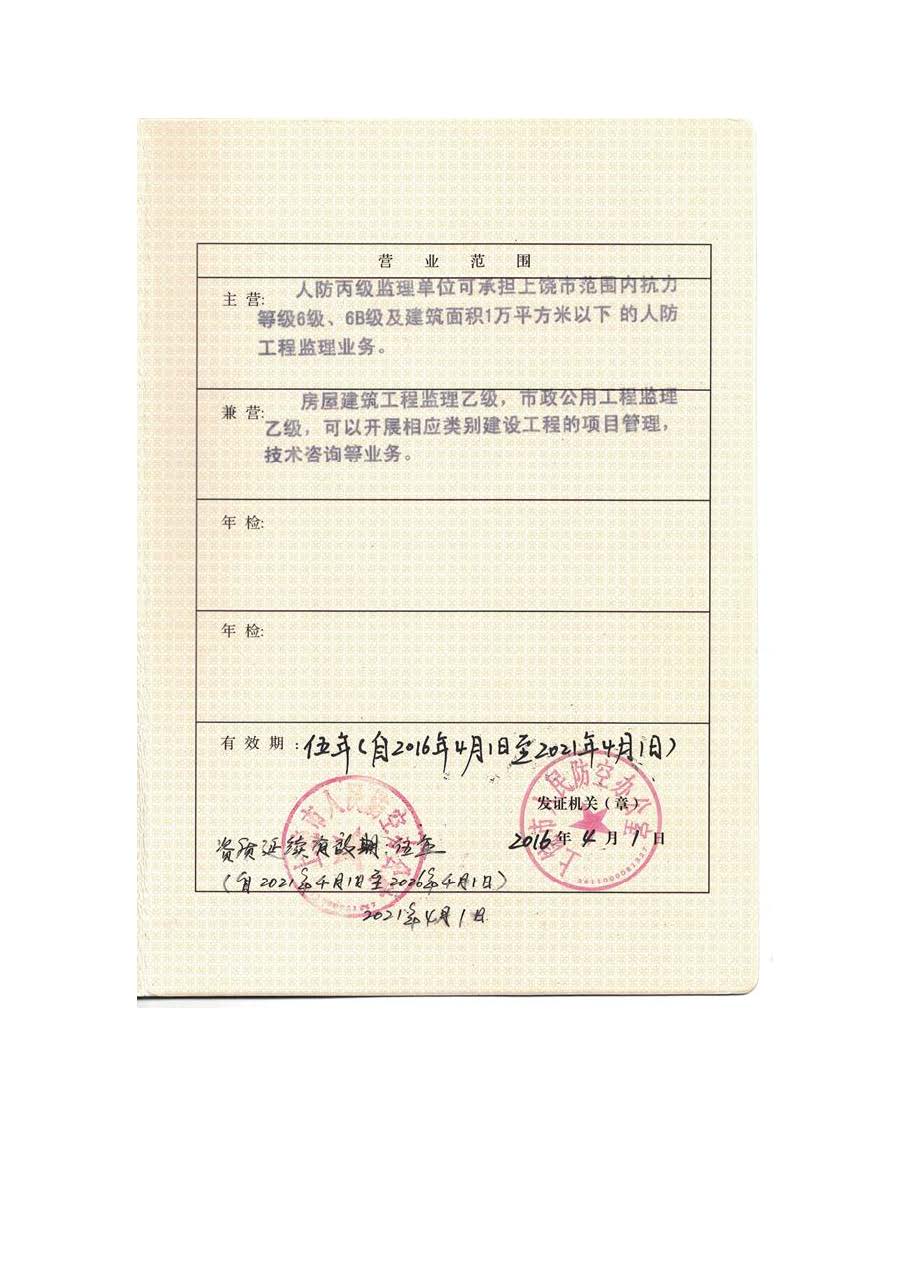 营业范围
主营: 人防丙级监理单位可承担上饶市范围内抗力
等级6级、6B级及建筑面积1万平方米以下 的人防
工程监理业务。
兼营: 房屋建筑工程监理乙级，市政公用工程监理
乙级，可以开展相应类别建设工程的项目管理，
技术咨询等业务。
年检:
年检:
有效期: 伍年(自2016年4月1日至2021年4月1日)
上饶市人民防空办公室
发证机关(章)
2016年4月1日
上饶市人民防空办公室
资质延续有效期: 伍年
(自2021年4月1日至2026年4月1日)
2021年4月1日